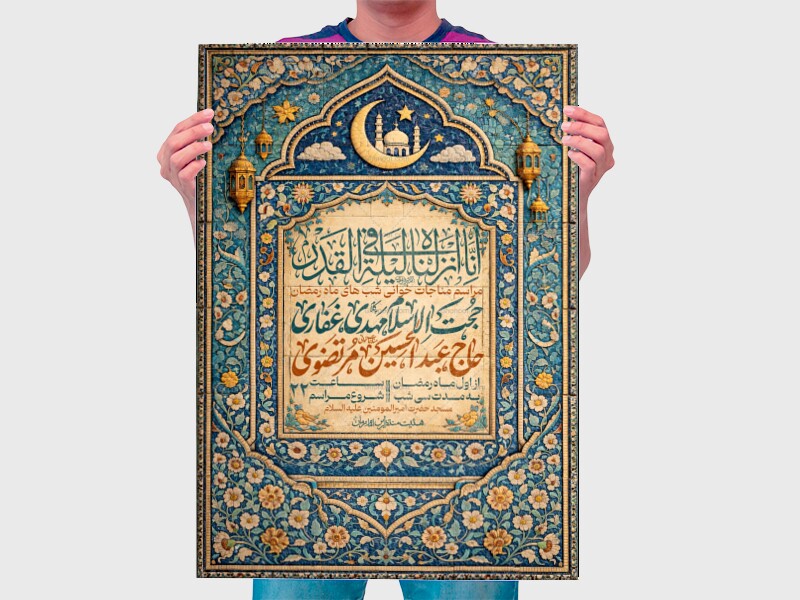 انا انزلناه فی لیلة القدر
مراسم مناجات خوانی شب های ماه رمضان
حجت الاسلام مهدی غفاری
حاج عبدالحسین مرتضوی
از اول ماه رمضان
به مدت سی شب
بساعت ۲۲
شروع مراسم
مسجد حضرت امیرالمومنین علیه السلام